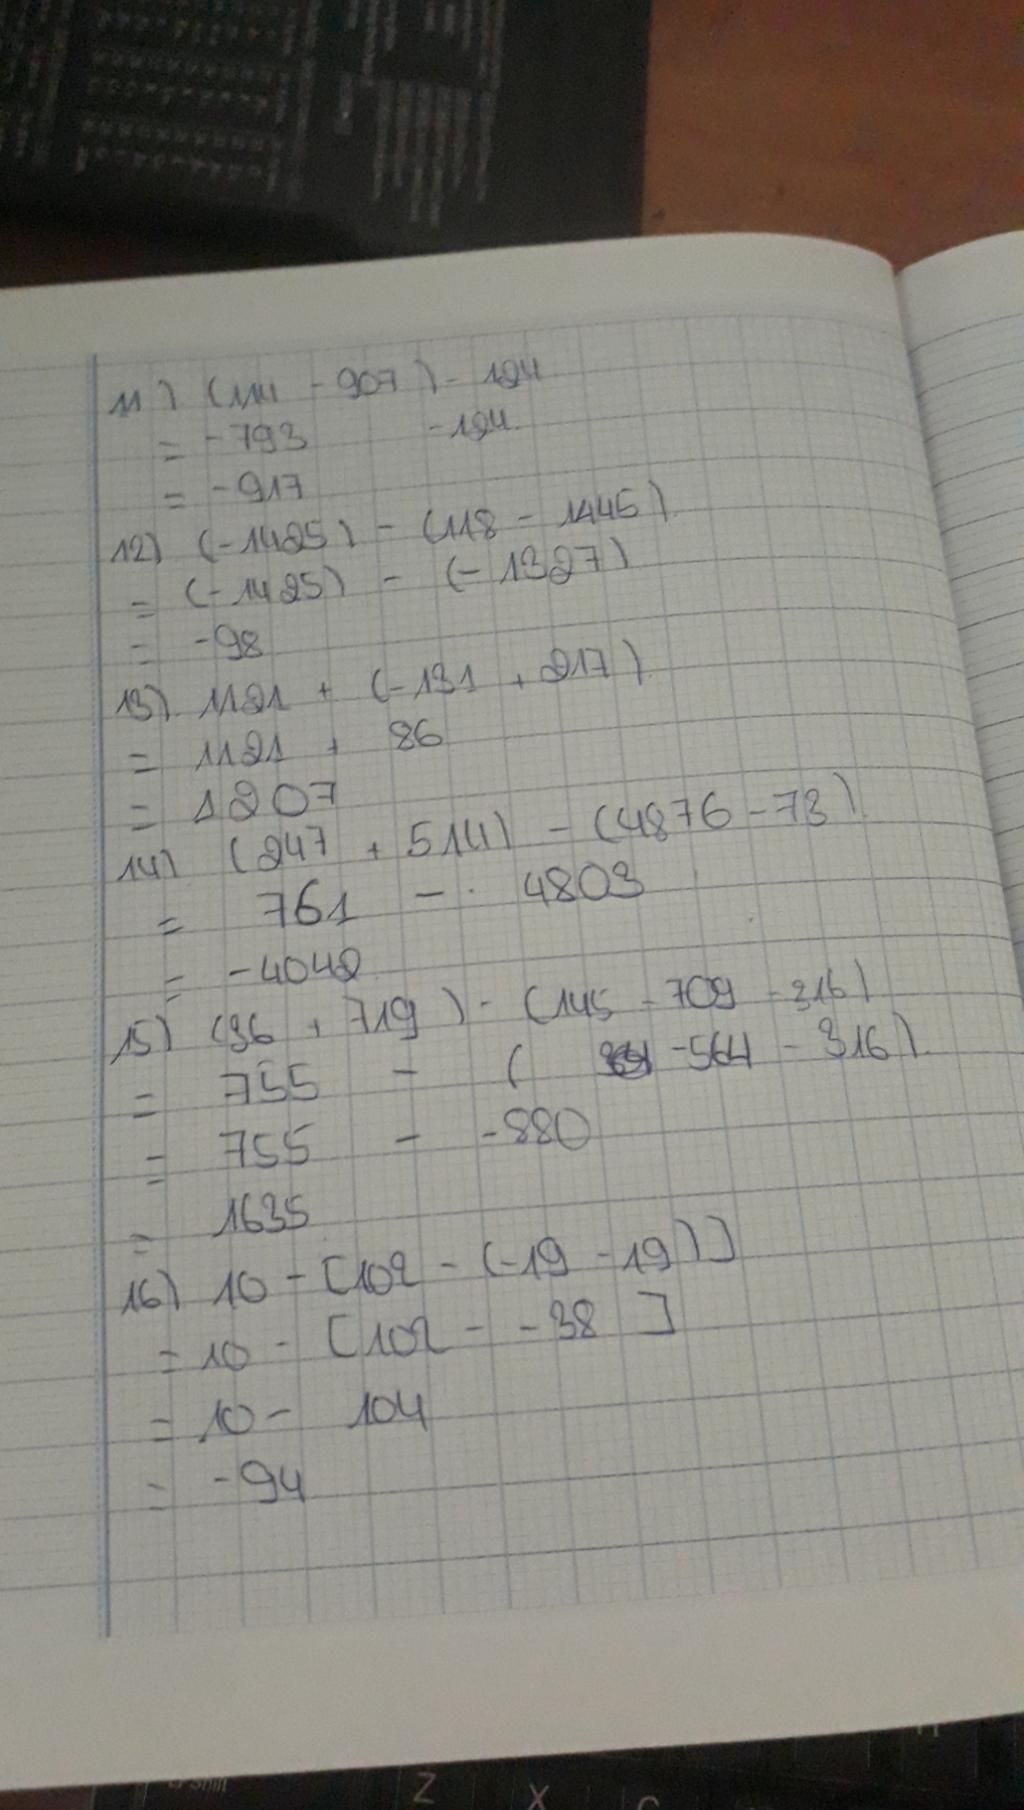 11) (114 - 907) - 124
= -793 -124
= -917
12) (-1425) - (118 - 1445)
= (-1425) - (-1327)
= -98
13) 1121 + (-131 + 217)
= 1121 + 86
= 1207
14) (247 + 514) - (4876 - 73)
= 761 - 4803
= -4042
15) (36 + 719) - (145 - 709 - 316)
= 755 - ( -564 - 316)
= 755 - -880
= 1635
16) 10 - [102 - (-19 - 19)]
= 10 - [102 - -38 ]
= 10 - 104
= -94
Z X